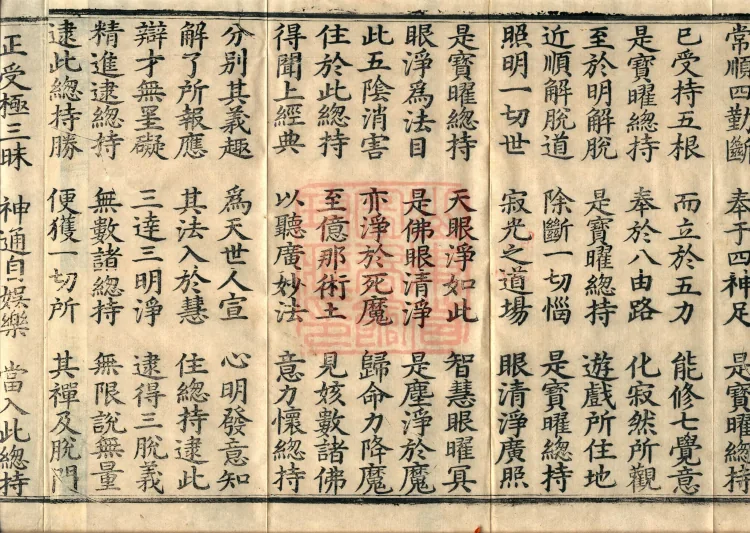 常順四勤斷 奉于四神足 是寶曜總持
已受持五根 而立於五力 能修七覺意
是寶曜總持 奉於八由路 化寂然所觀
至於明解脫 是寶曜總持 遊戲所住地
近順解脫道 除斷一切惱 是寶曜總持
照明一切世 寂光之道場 眼清淨廣照
是寶曜總持 天眼淨如此 智慧眼曜冥
眼淨為法目 是佛眼清淨 是塵淨於魔
此五陰消害 亦淨於死魔 歸命力降魔
住於此總持 至億那術土 見姟數諸佛
得聞上經典 以聽廣妙法 意力懷總持
分別其義趣 為天世人宣 心明發意知
解了所報應 其法入於慧 住總持逮此
辯才無罣礙 三達三明淨 逮得三脫義
精進逮總持 無數諸總持 無限說無量
逮此總持勝 便獲一切所 其禪及脫門
正受極三昧 神通自娛樂 當入此總持